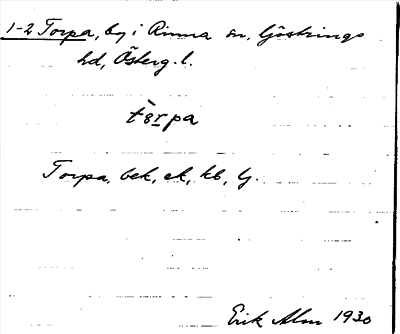 1-2 Torpa, by i Rinna sn, Göstrings
hd, Österg. l.
tɔ̀rpa
Torpa, bek, ek, kb, lj.
Erik Alm 1930